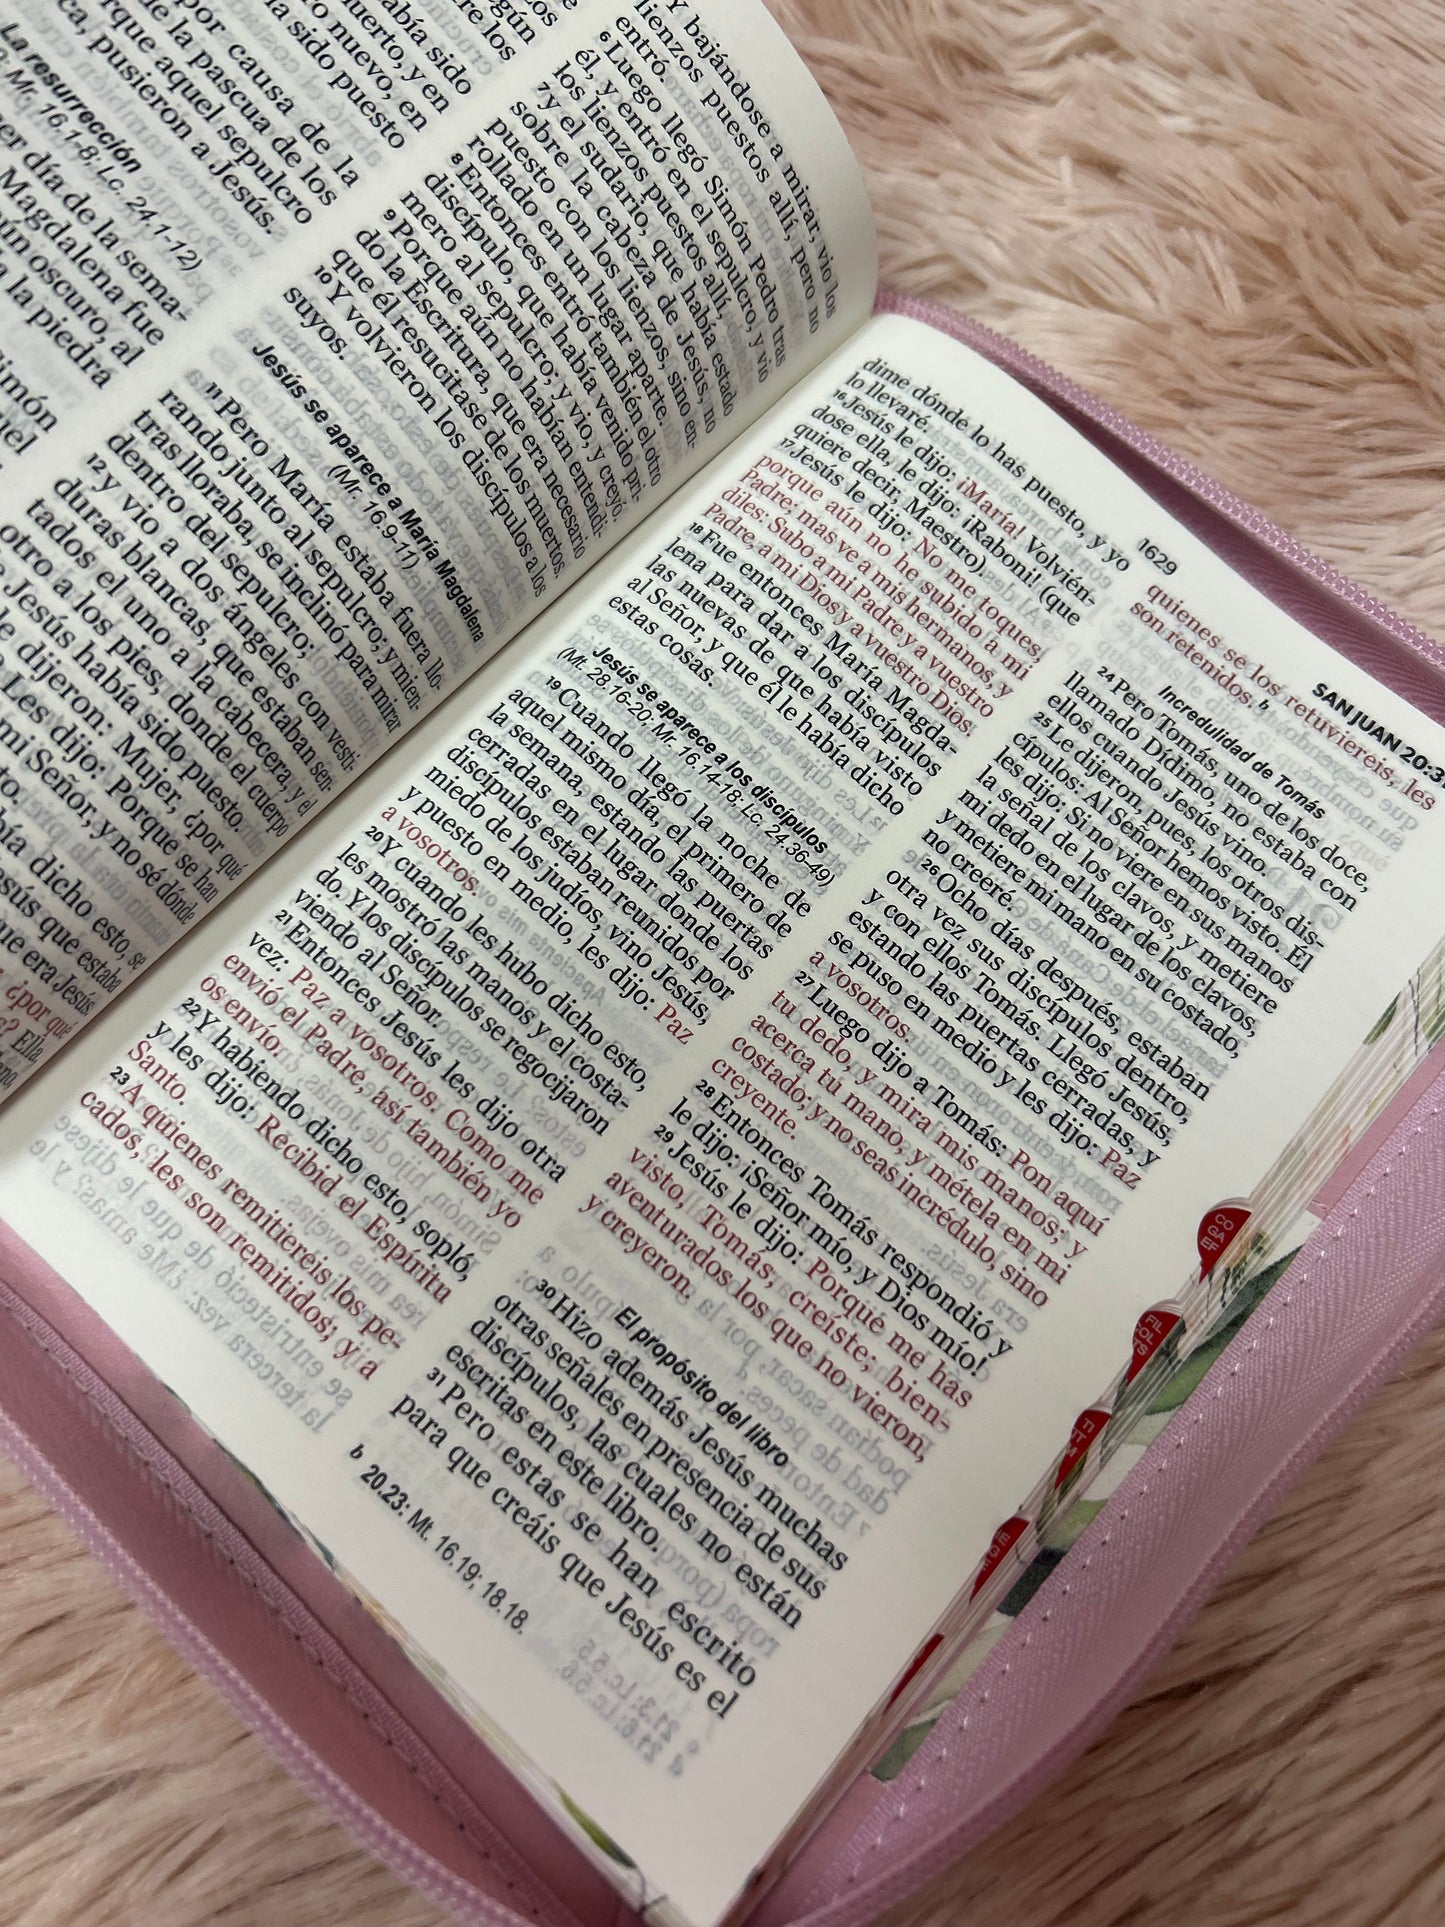 Los
re los
abía sido
uerto, y en
o nuevo, en
a sido puesto
por causa de la
e la pascua de los
rque aquel sepulcro
ca, pusieron a Jesús.
La resurrección
Mr. 16.1-8; Lc. 24.1-12)
er día de la sema-
Magdalena fue
ún oscuro, al
a la piedra
imón
Y bajándose a mirar, vio los
lienzos puestos allí, pero no
entró.
6 Luego llegó Simón Pedro tras
él, y entró en el sepulcro, y vio
los lienzos puestos allí,
7 y el sudario, que había estado
sobre la cabeza de Jesús, no
puesto con los lienzos, sino en-
rollado en un lugar aparte.
8 Entonces entró también el otro
discípulo, que había venido pri-
mero al sepulcro; y vio, y creyó.
9 Porque aún no habían entendi-
do la Escritura, que era necesario
que él resucitase de los muertos.
10 Y volvieron los discípulos a los
suyos.
Jesús se aparece a María Magdalena
(Mr. 16.9-11)
11 Pero María estaba fuera llo-
rando junto al sepulcro; y mien-
tras lloraba, se inclinó para mirar
dentro del sepulcro;
12 y vio a dos ángeles con vesti-
duras blancas, que estaban sen-
tados el uno a la cabecera, y el
otro a los pies, donde el cuerpo
de Jesús había sido puesto.
le dijeron: Mujer, ¿por qué
Les dijo: Porque se han
mi Señor, y no sé dónde
to.
bía dicho esto, se
esús que estaba
ue era Jesús
¿por qué
s? Ella,
1629
SAN JUAN 20:3
dime dónde lo has puesto, y yo
lo llevaré.
16 Jesús le dijo: ¡María! Volvién-
dose ella, le dijo: ¡Raboni! (que
quiere decir, Maestro).
17 Jesús le dijo: No me toques,
porque aún no he subido a mi
Padre; mas ve a mis hermanos, y
diles: Subo a mi Padre y a vuestro
Padre, a mi Dios y a vuestro Dios.
18 Fue entonces María Magda-
lena para dar a los discípulos
las nuevas de que había visto
al Señor, y que él le había dicho
estas cosas.
Jesús se aparece a los discípulos
(Mt. 28.16-20; Mr. 16.14-18; Lc. 24.36-49)
19 Cuando llegó la noche de
aquel mismo día, el primero de
la semana, estando las puertas
cerradas en el lugar donde los
discípulos estaban reunidos por
miedo de los judíos, vino Jesús,
y puesto en medio, les dijo: Paz
a vosotros.
20 Y cuando les hubo dicho esto,
les mostró las manos y el costa-
do. Y los discípulos se regocijaron
viendo al Señor.
21 Entonces Jesús les dijo otra
vez: Paz a vosotros. Como me
envió el Padre, así también yo
os envío.
22 Y habiendo dicho esto, sopló,
y les dijo: Recibid el Espíritu
Santo.
23 A quienes remitiereis los pe-
cados, les son remitidos; y a
quienes se los retuviereis, les
son retenidos. b
Incredulidad de Tomás
24 Pero Tomás, uno de los doce,
llamado Dídimo, no estaba con
ellos cuando Jesús vino.
25 Le dijeron, pues, los otros dis-
cípulos: Al Señor hemos visto. Él
les dijo: Si no viere en sus manos
la señal de los clavos, y metiere
mi dedo en el lugar de los clavos,
y metiere mi mano en su costado,
no creeré.
26 Ocho días después, estaban
otra vez sus discípulos dentro,
y con ellos Tomás. Llegó Jesús,
estando las puertas cerradas, y
se puso en medio y les dijo: Paz
a vosotros.
27 Luego dijo a Tomás: Pon aquí
tu dedo, y mira mis manos; y
acerca tu mano, y métela en mi
costado; y no seas incrédulo, sino
creyente.
28 Entonces Tomás respondió y
le dijo: ¡Señor mío, y Dios mío!
29 Jesús le dijo: Porque me has
visto, Tomás, creíste; bien-
aventurados los que no vieron,
y creyeron.
El propósito del libro
30 Hizo además Jesús muchas
otras señales en presencia de sus
discípulos, las cuales no están
escritas en este libro.
31 Pero estas se han escrito
para que creáis que Jesús es el
b 20.23: Mt. 16.19; 18.18.
CO
GA
EF
FIL
COL
TS
TI
TIT